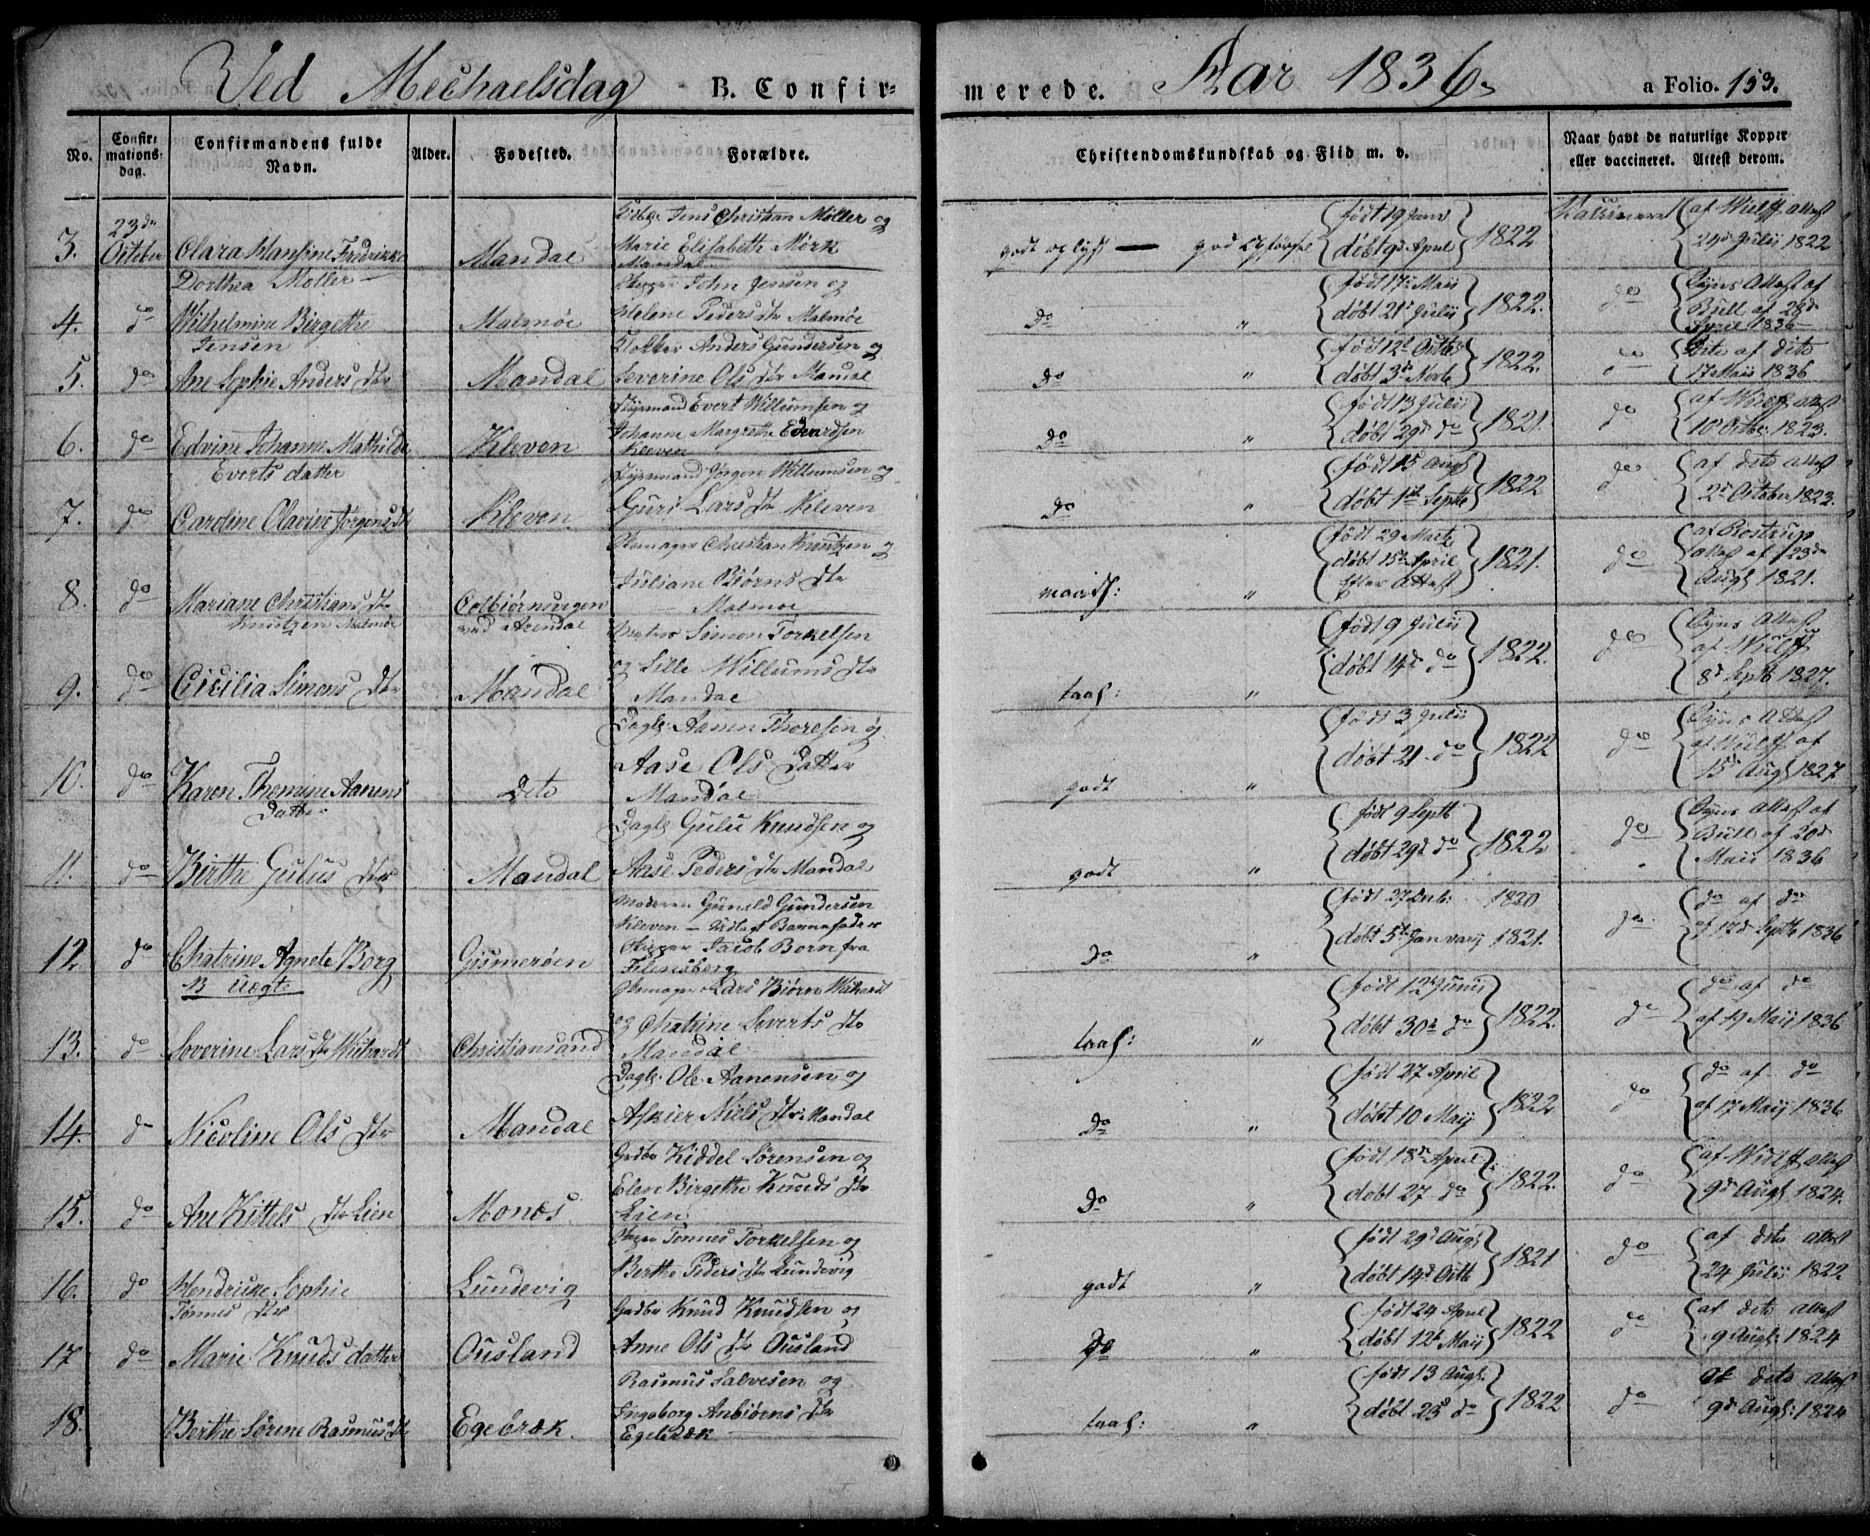 Ved Mechaelsdag B. Confirmerede. Aar 1836. a Folio. 153.
No. Confirmationsdag. Confirmandens fulde Navn. Alder. Fødested. Forældre. Christendomskundskab og Flid m. v. Naar havt de naturlige Kopper eller vaccineret. Attest derom.
3. 23de October Clara Hansine Fredrikke Dorthea Møller Mandal Jens Christian Møller og Marie Elisabeth Mørk Mandal godt oplyst — god Opførsel født 19 Janv døbt 9d April 1822 Vaccineret af Wulff attest 24d Julii 1822
4. do Wilhelmine Birgethe Jensen Malmøe Skipper John Jensen og Helene Peders dtr Malmøe Do " født 17 Maii døbt 21d Julii 1822. do Syns Attest af Bull af 28d April 1836
5. do Ane Sophie Anders dtr Mandal Klokker Anders Gundersen og Severine Ols dtr Mandal Do " født 12t Octb døbt 3d Novb 1822. do Dito af dito 17 Maii 1836
6. do Edvine Johanne Mathilde Everts datter Kleven Styrmand Evert Willumsen og Johanne Margrethe Edvardsen Kleven Do " født 13 Julii døbt 29d do 1821. do af Wulff attest 10 Octbr 1823.
7. do Caroline Olavine Jørgens dt Kleven Styrmand Jørgen Willumsen og Guri Lars dtr Kleven Do " født 15 Augs døbt 1st Septb 1822 do af dito attest 2d October 1823.
8. do Mariane Christians dtr Knutzen Malmøe Colbiørnsvigen ved Arendal Christian Knutzen og Juliane Biørns dtr Malmøe " født 29 Marts døbt 15de April Efter Attest 1821. do af Rostrup attest af 23de Augs 1821.
9. do Cicilia Simons dtr Mandal Simon Torkelsen og Sille Willums dtr Mandal taal: " født 9 Julii døbt 14d do 1822. do Syns Attest af Wulff 8d Septb 1827.
10. do Karen Themine Aanens Datter Dito Dagl: Aanen Thoresen og Aase Ols Datter Mandal godt " født 3 Julii døbt 21 do 1822 do Syns Attest af Wulff af 15 Augs 1827
11. do Birthe Gulus dtr Mandal Dagl: Gulu Knudsen og Aase Peders dtr Mandal godt " født 9 Septb døbt 29d do 1822 do Syns attest af Bull af 20d Maii 1836
12. do Chatrine Agnete Borg NB Uægte Gismerøen Moderen Gunild Gundersen Kleven — Udlagt Barnefader Skipper Jacob Born fra Flensborg Do " født 27 Decb: 1820 døbt 5te January 1821. do do af do af 12d Septb 1836
13. do Severine Lars dtr Wichardt Christiansand Lars Biørn Wichardt og Chatrine Siverts dtr Mandal taal: " født 12 Junii døbt 30d do 1822. do do af do af 19 Maij 1836
14. do Nicoline Ols dtr Mandal Dagl: Ole Aanensen og Asgier Niels dtr: Mandal Do " født 27 April døbt 10 Maij 1822 do do af do af 17 Maij 1836
15. do Ane Kittels dtr Lien Monæs Gbdbr Kiddel Sørensen og Elen Birgethe Knuds dtr Lien Do " født 18de April døbt 27 do 1822. do af Wulff attest 9d Augs 1824.
16. do Hendricke Sophie Tønnes dtr Lundevig Skipper Tønnes Torkelsen og Berthe Peders dtr Lundevig godt " født 29d Augs døbt 14d Octb 1821 do af dito attest 24 Julii 1822
17 do Marie Knuds datter Ousland Gbdbr Knud Knudsen og Anne Ols dtr Ousland Do " født 24 April døbt 12te Maij 1822 do af dito attest 9 Augs: 1824
18. Berthe Sørine Rasmus dt Egebræk. Rasmus Salvesen og Ingeborg Anbiørns dtr Egebræk taal: " født 13 Augs: døbt 25d do 1822 do af dito attest 9d Augs: 1824